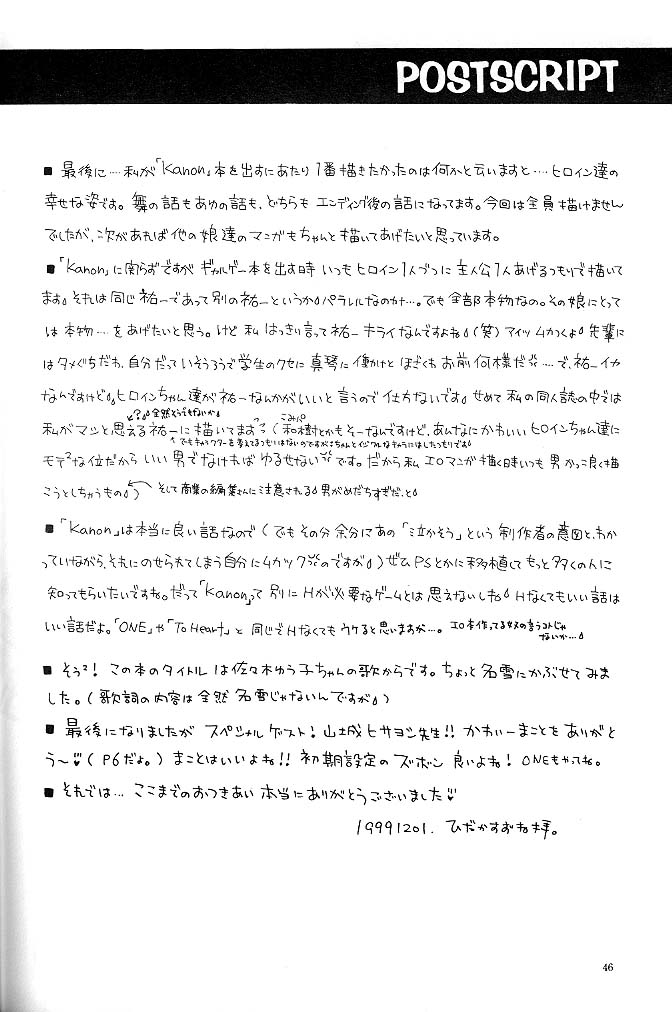 POSTSCRIPT
■ 最後に…私が「Kanon」本を出すにあたり1番描きたかったのは何かと云いますと…ヒロイン達の
幸せな姿です。舞の話もあゆの話も、どちらも エンディング後の話になってます。今回は全員描けません
でしたが、次があれば他の娘達のマンガもちゃんと描いてあげたいと思っています。
■「Kanon」に関らずですが ギャルゲー本を出す時 いつもヒロイン1人づつに主人公1人あげるつもりで描いて
ます。それは同じ祐一であって別の祐一というか パラレルなのか…。でも全部本物なの。その娘にとって
は本物…をあげたいと思う。けど 私 はっきり言って祐一 キライなんですよね (笑) アイツムカつくよ 先輩に
はタメぐちだわ、自分だっていそうろうで学生のクセに 真琴に働かけとほざくわ お前何様だ…で、祐一イカ
なんですけど ヒロインちゃん達が祐一なんかがいいと言うので仕方ないです せめて私の同人誌の中では
?全然そうでもないか
私がマシと思える祐一に描いてます (和樹とかもそーなんですけど、あんなにかわいいヒロインちゃん達に
こみパ
でもキャラクターを考えてるつもりはないのですが
モテ²な位だから いい男でなければ ゆるせない です。だから私 エロマンガ描く時いつも 男 かっこ良く描
こうとしちゃうもの) そして商業の編集さんに注意される 男がめだちすぎだ、と
■「Kanon」は本当に良い話なので (でもその分余分にあの「泣かそう」という制作者の意図と、わか
っていながら、それにのせられてしまう自分にムカツクのですが) ぜひPSとかに移植してもっと多くの人に
知ってもらいたいですね。だって「Kanon」って 別にHが必要なゲームとは思えないしね Hなくてもいい話は
いい話だよ。「ONE」や「To Heart」と 同じでHなくてもウケると思いますが…。エロ本作ってる奴の言うコトじゃ
ないか…
■ そう²! この本のタイトル は佐々木ゆう子ちゃんの歌からです。ちょっと名雪にかぶせてみま
した。(歌詞の内容は全然 名雪じゃないんですが)
■ 最後になりましたが スペシャルゲスト! 山城ヒサヨシ先生!! かわいーまことをありがと
う〜♡ (P6だよ。) まことはいいよね!! 初期設定のズボン 良いよね! ONEもやってね。
■ それでは… ここまでのおつきあい 本当にありがとうございました♡
19991201. ひだかすずね拝。
46